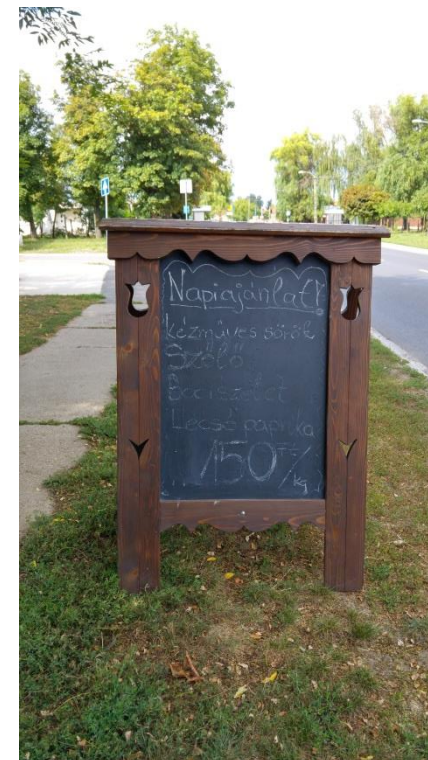 Napiajánlat!
kézműves sörök
Szőlő
Boci szelet
Lecsó paprika
150 Ft/kg